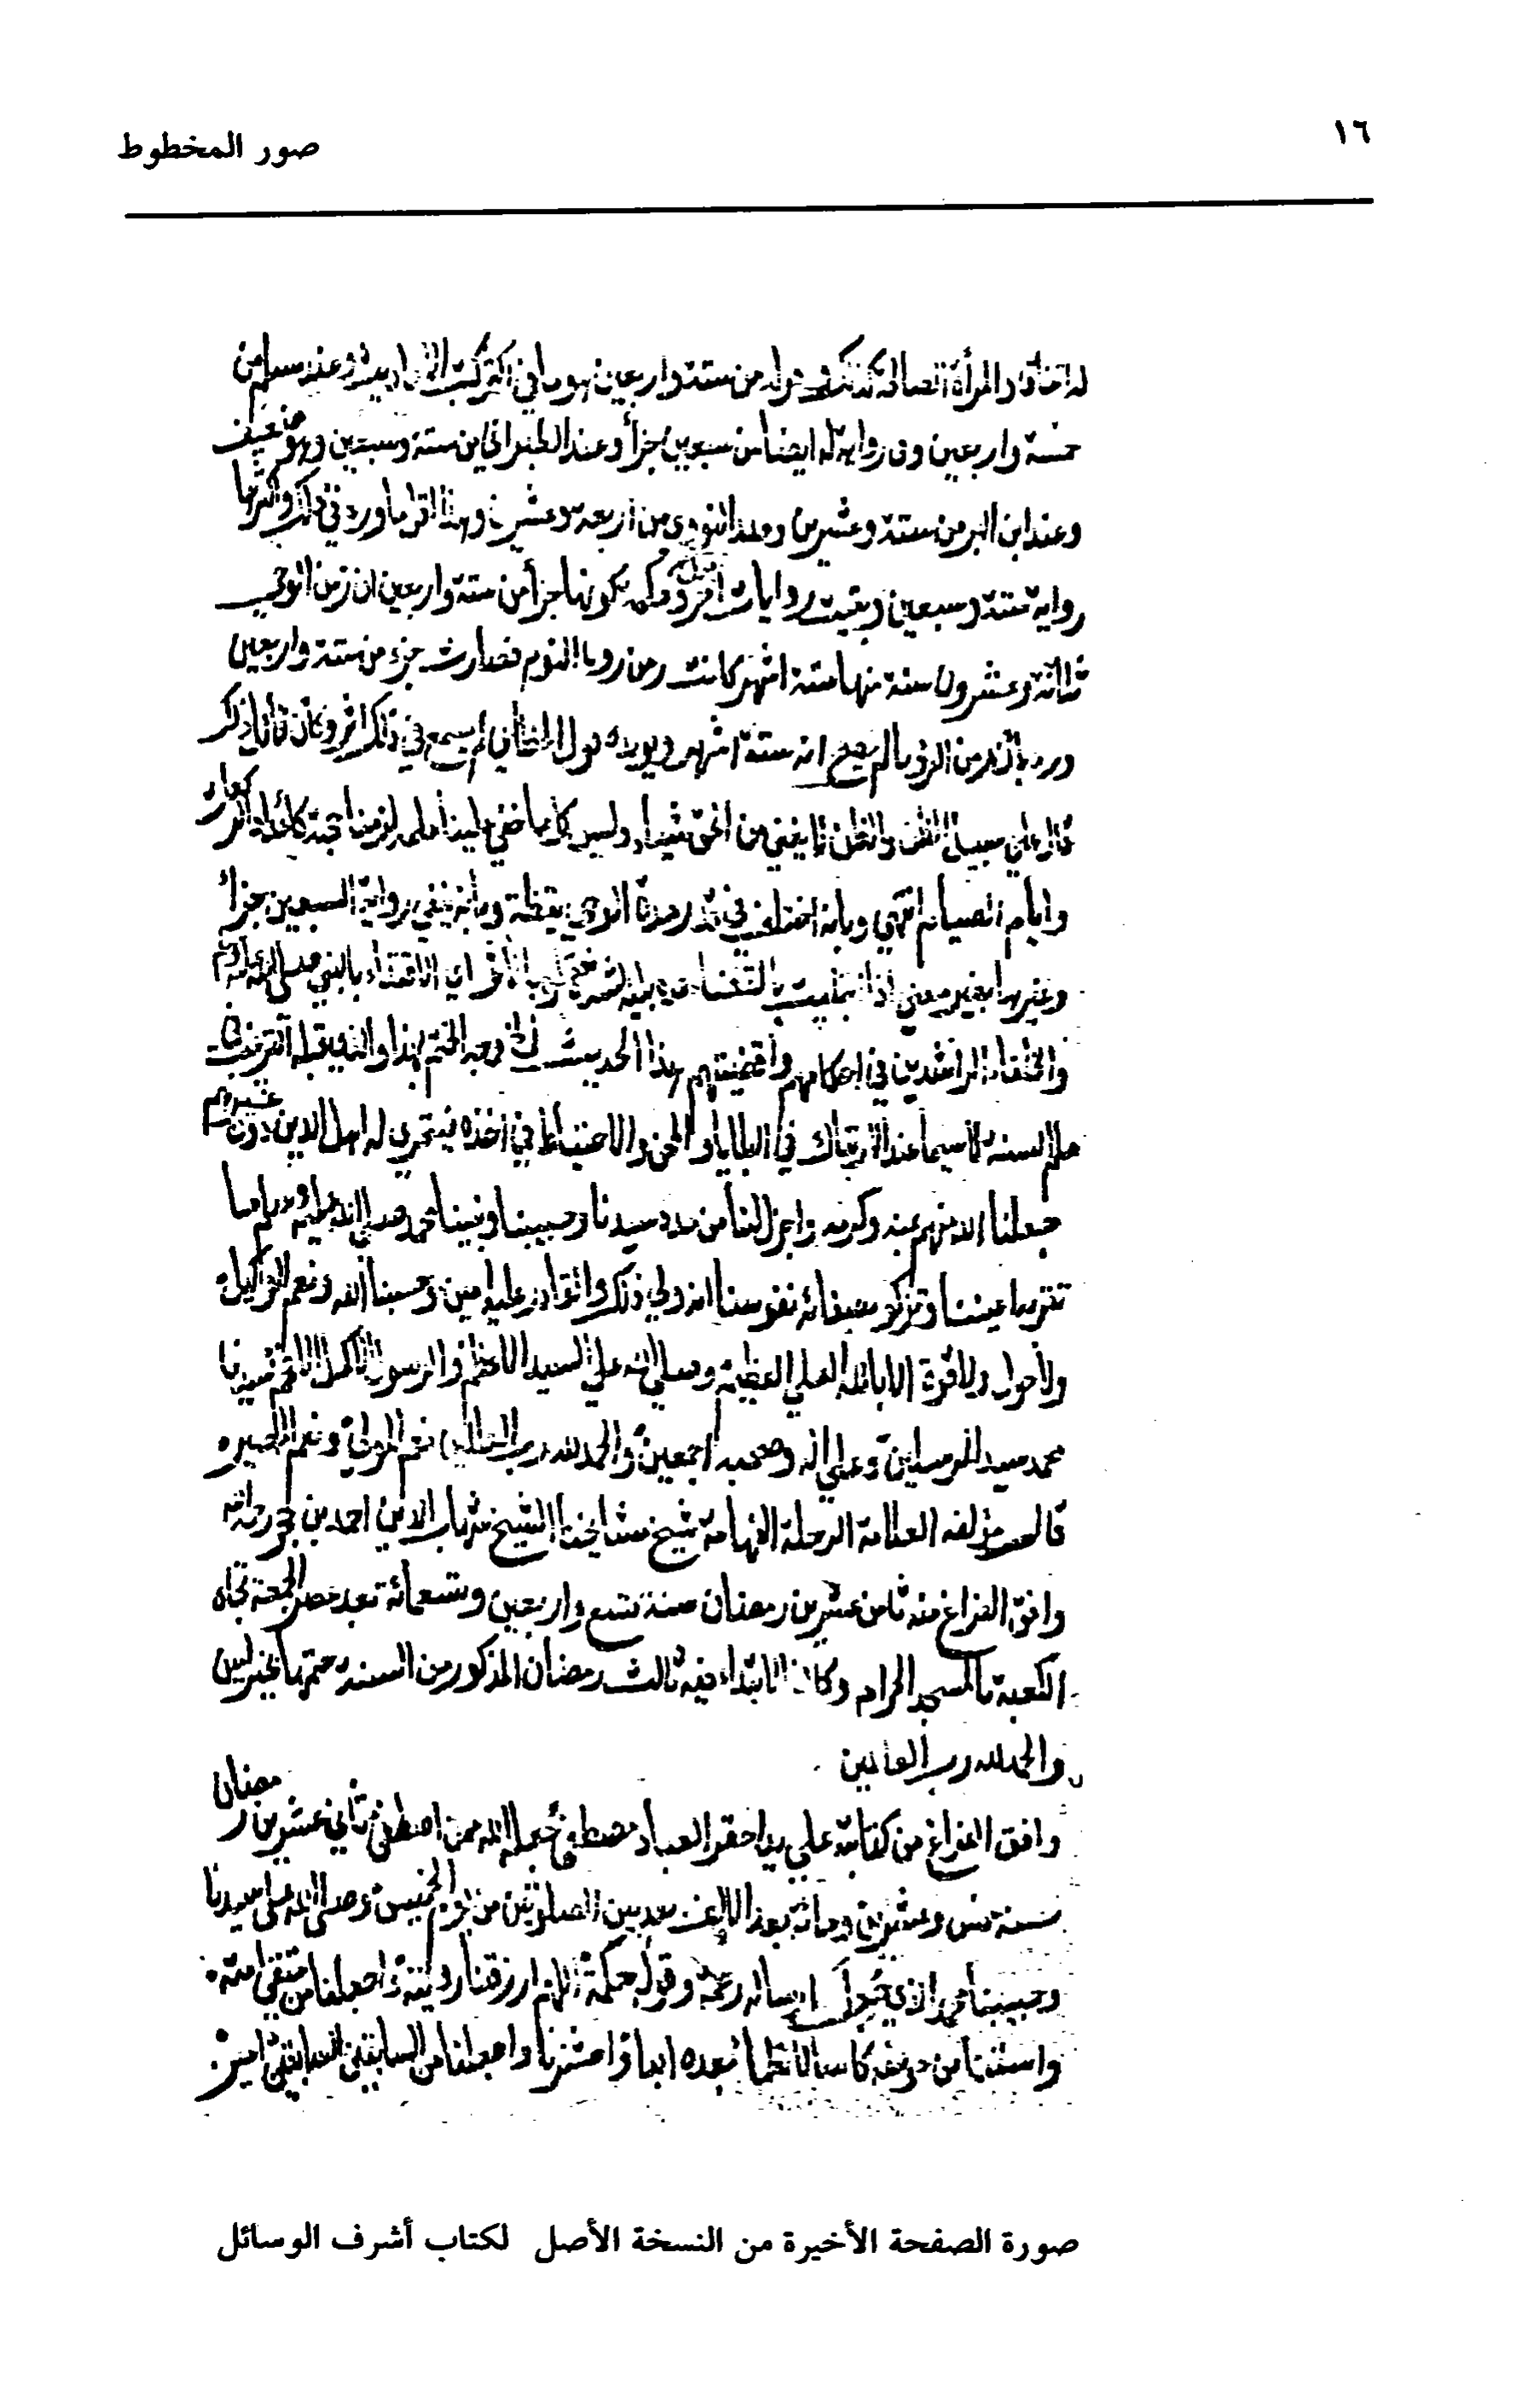 ١٦
صور المخطوط
والمرأة الصالحة كذلك قوله من ستة واربعين هو ما في اكثر كتب الاحاديث وعند مسلم من
خمسة واربعين وفي رواية له ايضا من سبعين جزأ وعند الطبراني من ستة وسبعين وهو ضعيف
وعند ابن البر من ستة وعشرين وعند النووي من اربعة وعشرين وهذا اقل ما ورد في ذلك واكثرها
رواية ستة وسبعين وبقيت روايات اخر بكونها جزأ من ستة واربعين ان زمن الوحي
ثلاثة وعشرون سنة منها ستة اشهر كانت زمن رويا النوم فصارت جزء من ستة واربعين
ورد بان زمن الرؤيا لم يصح انه ستة اشهر ويؤيده قول الخطابي لم يسمع في ذلك اثر وكأن قائله ذكر
قاله على سبيل الظن والظن لا يغني من الحق شيأ وليس كل ما خفي علينا علمه لزمنا حجته كأعداد الركعات
وايام الصيام انتهى وبانه اختلف في قدر مدة الوحي يقظة وبأنه يبقى رواية السبعين جزأ
وغيرها بغير معنى اذا ابتليت بالقضاء بالأثر اي الاقتداء بالنبي صلى الله عليه وسلم
والخلفاء الراشدين في احكامهم واقضيتهم هذا الحديث وجه الختم بهذا والذي قبله الترغيب في
علم السنة لا سيما عند الارتباك في البلايا والمحن والاحتياط في اخذه فيتحرى له اهل الدين دون غيرهم
جعلنا الله منهم بمنه وكرمه واجزل لنا من مدد سيدنا وحبيبنا ونبينا محمد صلى الله عليه وسلم ما
تقر به اعيننا وتزكو بصفائه نفوسنا انه ولي ذلك والقادر عليه امين وحسبنا الله ونعم الوكيل
ولا حول ولا قوة الا بالله العلي العظيم وصلى الله على السيد الاعظم والرسول الاكمل الافخم سيدنا
محمد سيد المرسلين وعلى اله وصحبه اجمعين والحمد لله رب العالمين نعم المولى ونعم النصير
قال مؤلفه العلامة الرحلة الفهامة شيخ مشايخنا الشيخ شهاب الدين احمد بن حجر رحمه الله
وافق الفراغ منه ثامن عشرين رمضان سنة تسع واربعين وتسعمائة بعد عصر الجمعة تجاه
الكعبة بالمسجد الحرام وكان الابتداء فيه ثالث رمضان المذكور من السنة ختمها بخير امين
والحمد لله رب العالمين
وافق الفراغ من كتابته على يد احقر العباد مصطفى جعله الله ممن اصطفى ثاني عشرين رمضان
سنة خمس وعشرين ومائة بعد الالف بين الصلوتين من يوم الخميس وصلى الله على سيدنا
وحبيبنا محمد الذي ارساله رحمة وقوله حكمة اللهم ارزقنا رؤيته واجعلنا من متقي امته
واسقنا من حوضه كاسا لا نظمأ بعده ابدا واحشرنا واجعلنا من السابقين السابقين امين
صورة الصفحة الأخيرة من النسخة الأصل لكتاب أشرف الوسائل